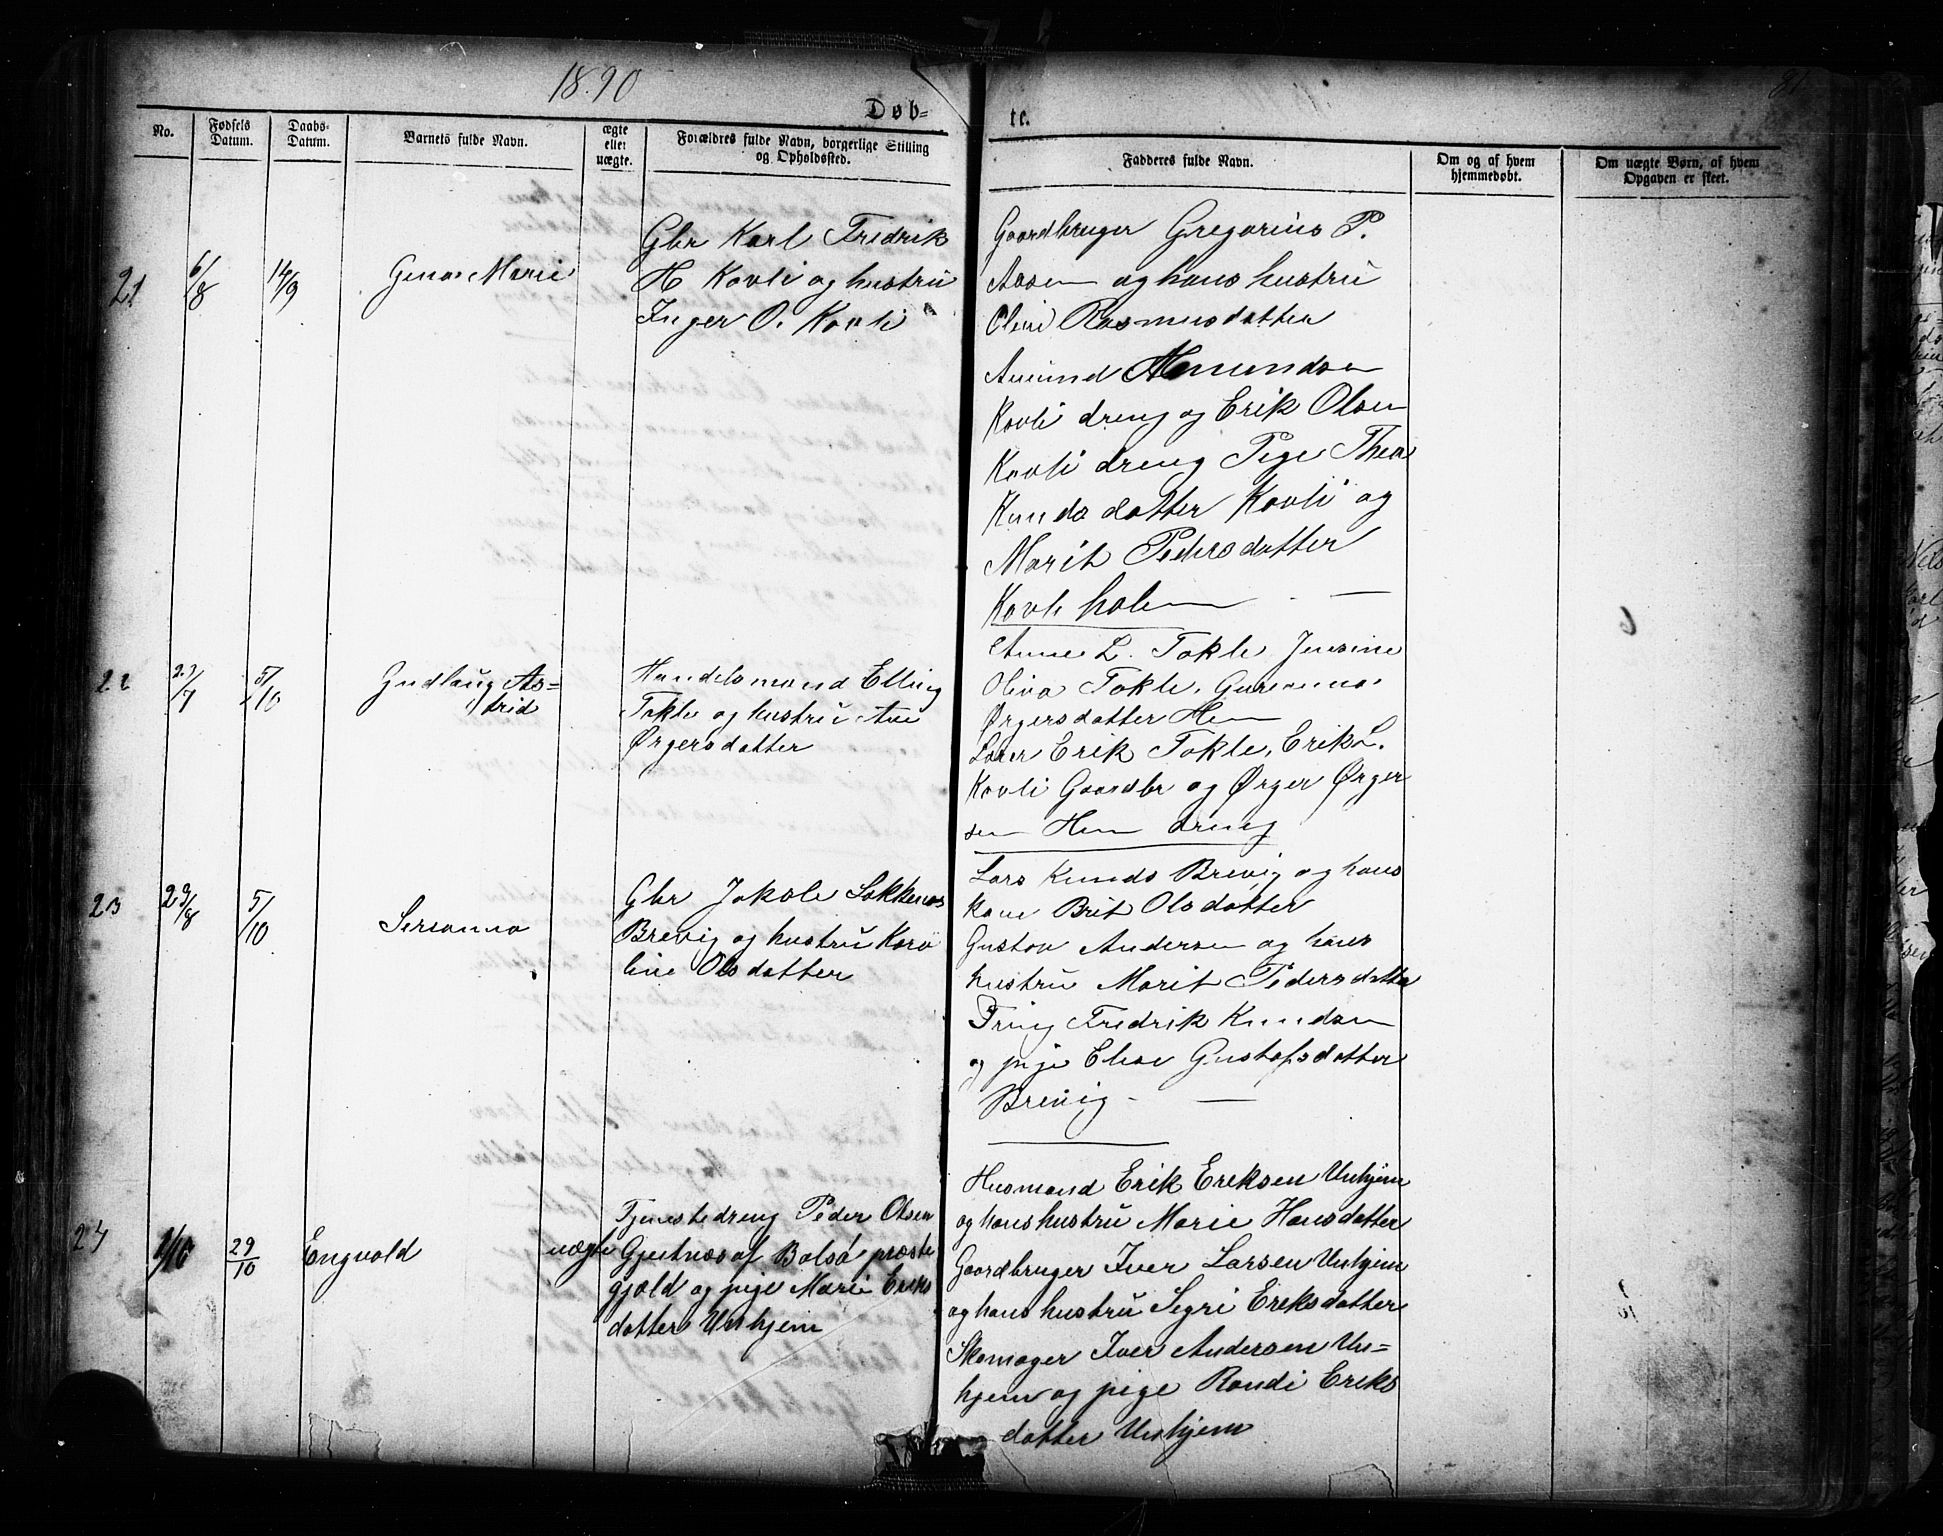 1890
81
Døb=
te.
No.
Fødsels
Datum.
Daabs-
Datum.
Barnets fulde Navn.
ægte
eller
uægte.
Forældres fulde Navn, borgerlige Stilling
og Opholdssted.
Fadderes fulde Navn.
Om og af hvem
hjemmedøbt.
Om uægte Børn, af hvem
Opgaven er skeet.
21
6/8
14/9
Marie
Gbr Karl Fredrik
H Kavli og hustru
Inger O. Kavli
Gaardbruger Gregorius P.
Aasen og hans hustru
Oline Rasmusdatter
Amund Amundsen
Kavli dreng og Erik Olsen
Kavli dreng Pige Thea
Knudsdatter Kavli og
Marit Pedersdatter
Kavli holm —
22
5/10
Gudlaug As=
trid
Handelsmand Elling
Tokle og hustru Ane
Ørgersdatter
Anne L. Tokle, Jensine
Oliva Tokle,
Ørgersdatter Hem
Lærer Erik Tokle, Erik L.
Kavli Gaardbr og Ørger Ørger
sen Hem dreng
23
29/8
5/10
Gbr Jakob
Brevig og hustru Karo
line Olsdatter
Lars Knuds Brevig og hans
kone Brit Olsdatter
Gustav Andersen og hans
hustru Marit Pedersdatter
Fredrik Knudsen
og pige Elise Gustafsdatter
Brevig - —
24
29/10
Engvald
uægte
Tjenestedreng Peder Olsen
Gjestnæs af Bolsø præste
gjæld og pige Marie Eriks
datter Unhjem
Husmand Erik Eriksen Unhjem
og hans hustru Marie Hansdatter
Gaardbruger Iver Larsen Unhjem
og hans hustru Segri Eriksdatter
Skomager Iver Andersen Un=
hjem og pige Randi Eriks
datter Unhjem